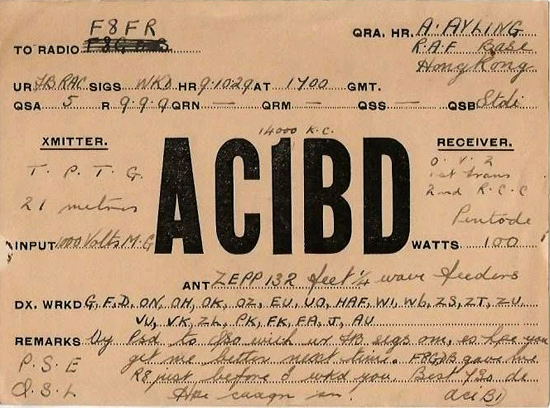 F8FR
TO RADIO
QRA. HR. A. AYLING
R.A.F Base
Hong Kong
UR FB RAC SIGS WKD HR 9.10.29 AT 1700 GMT.
QSA 5 R 9.9.9 QRN — QRM — QSS — QSB Stdi
14000 K.C.
XMITTER.
T. P. T. G.
21 metres
INPUT 1000 Volts M.G
AC1BD
RECEIVER.
O. V. 2
1st trans
2nd R.C.C
Pentode
WATTS 100
ANT ZEPP 132 feet ¼ wave feeders
DX. WRKD G, F, D, ON, OH, OK, OZ, EU, UO, HAF, W1, W6, ZS, ZT, ZU
VU, VK, ZL, PK, FK, FA, J, AU
REMARKS by Psd to Qso with ur FB sigs om, es hpe you
P. S. E get me better next time. gave me
Q. S. L R8 just before I wkd you Best 73s de
Hpe cuagn sn. ac1BD